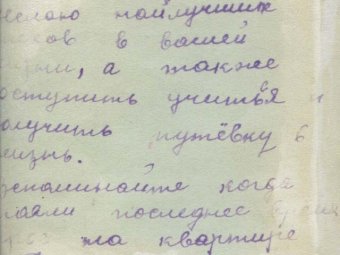 желаю найлучших
хов в вашей
зни, а также
оступить учиться и
олучить путёвку в
жизнь.
вспоминайте когда
последнее время
на квартире